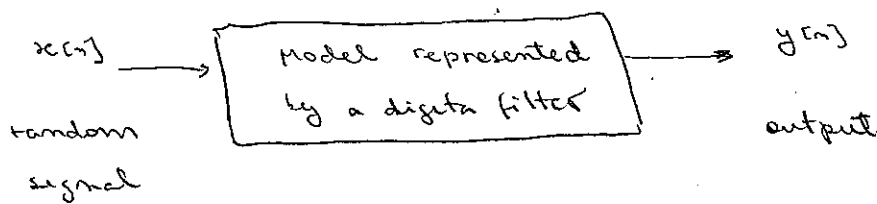 x[n]
Model represented
by a digita filter
y[n]
random
signal
output